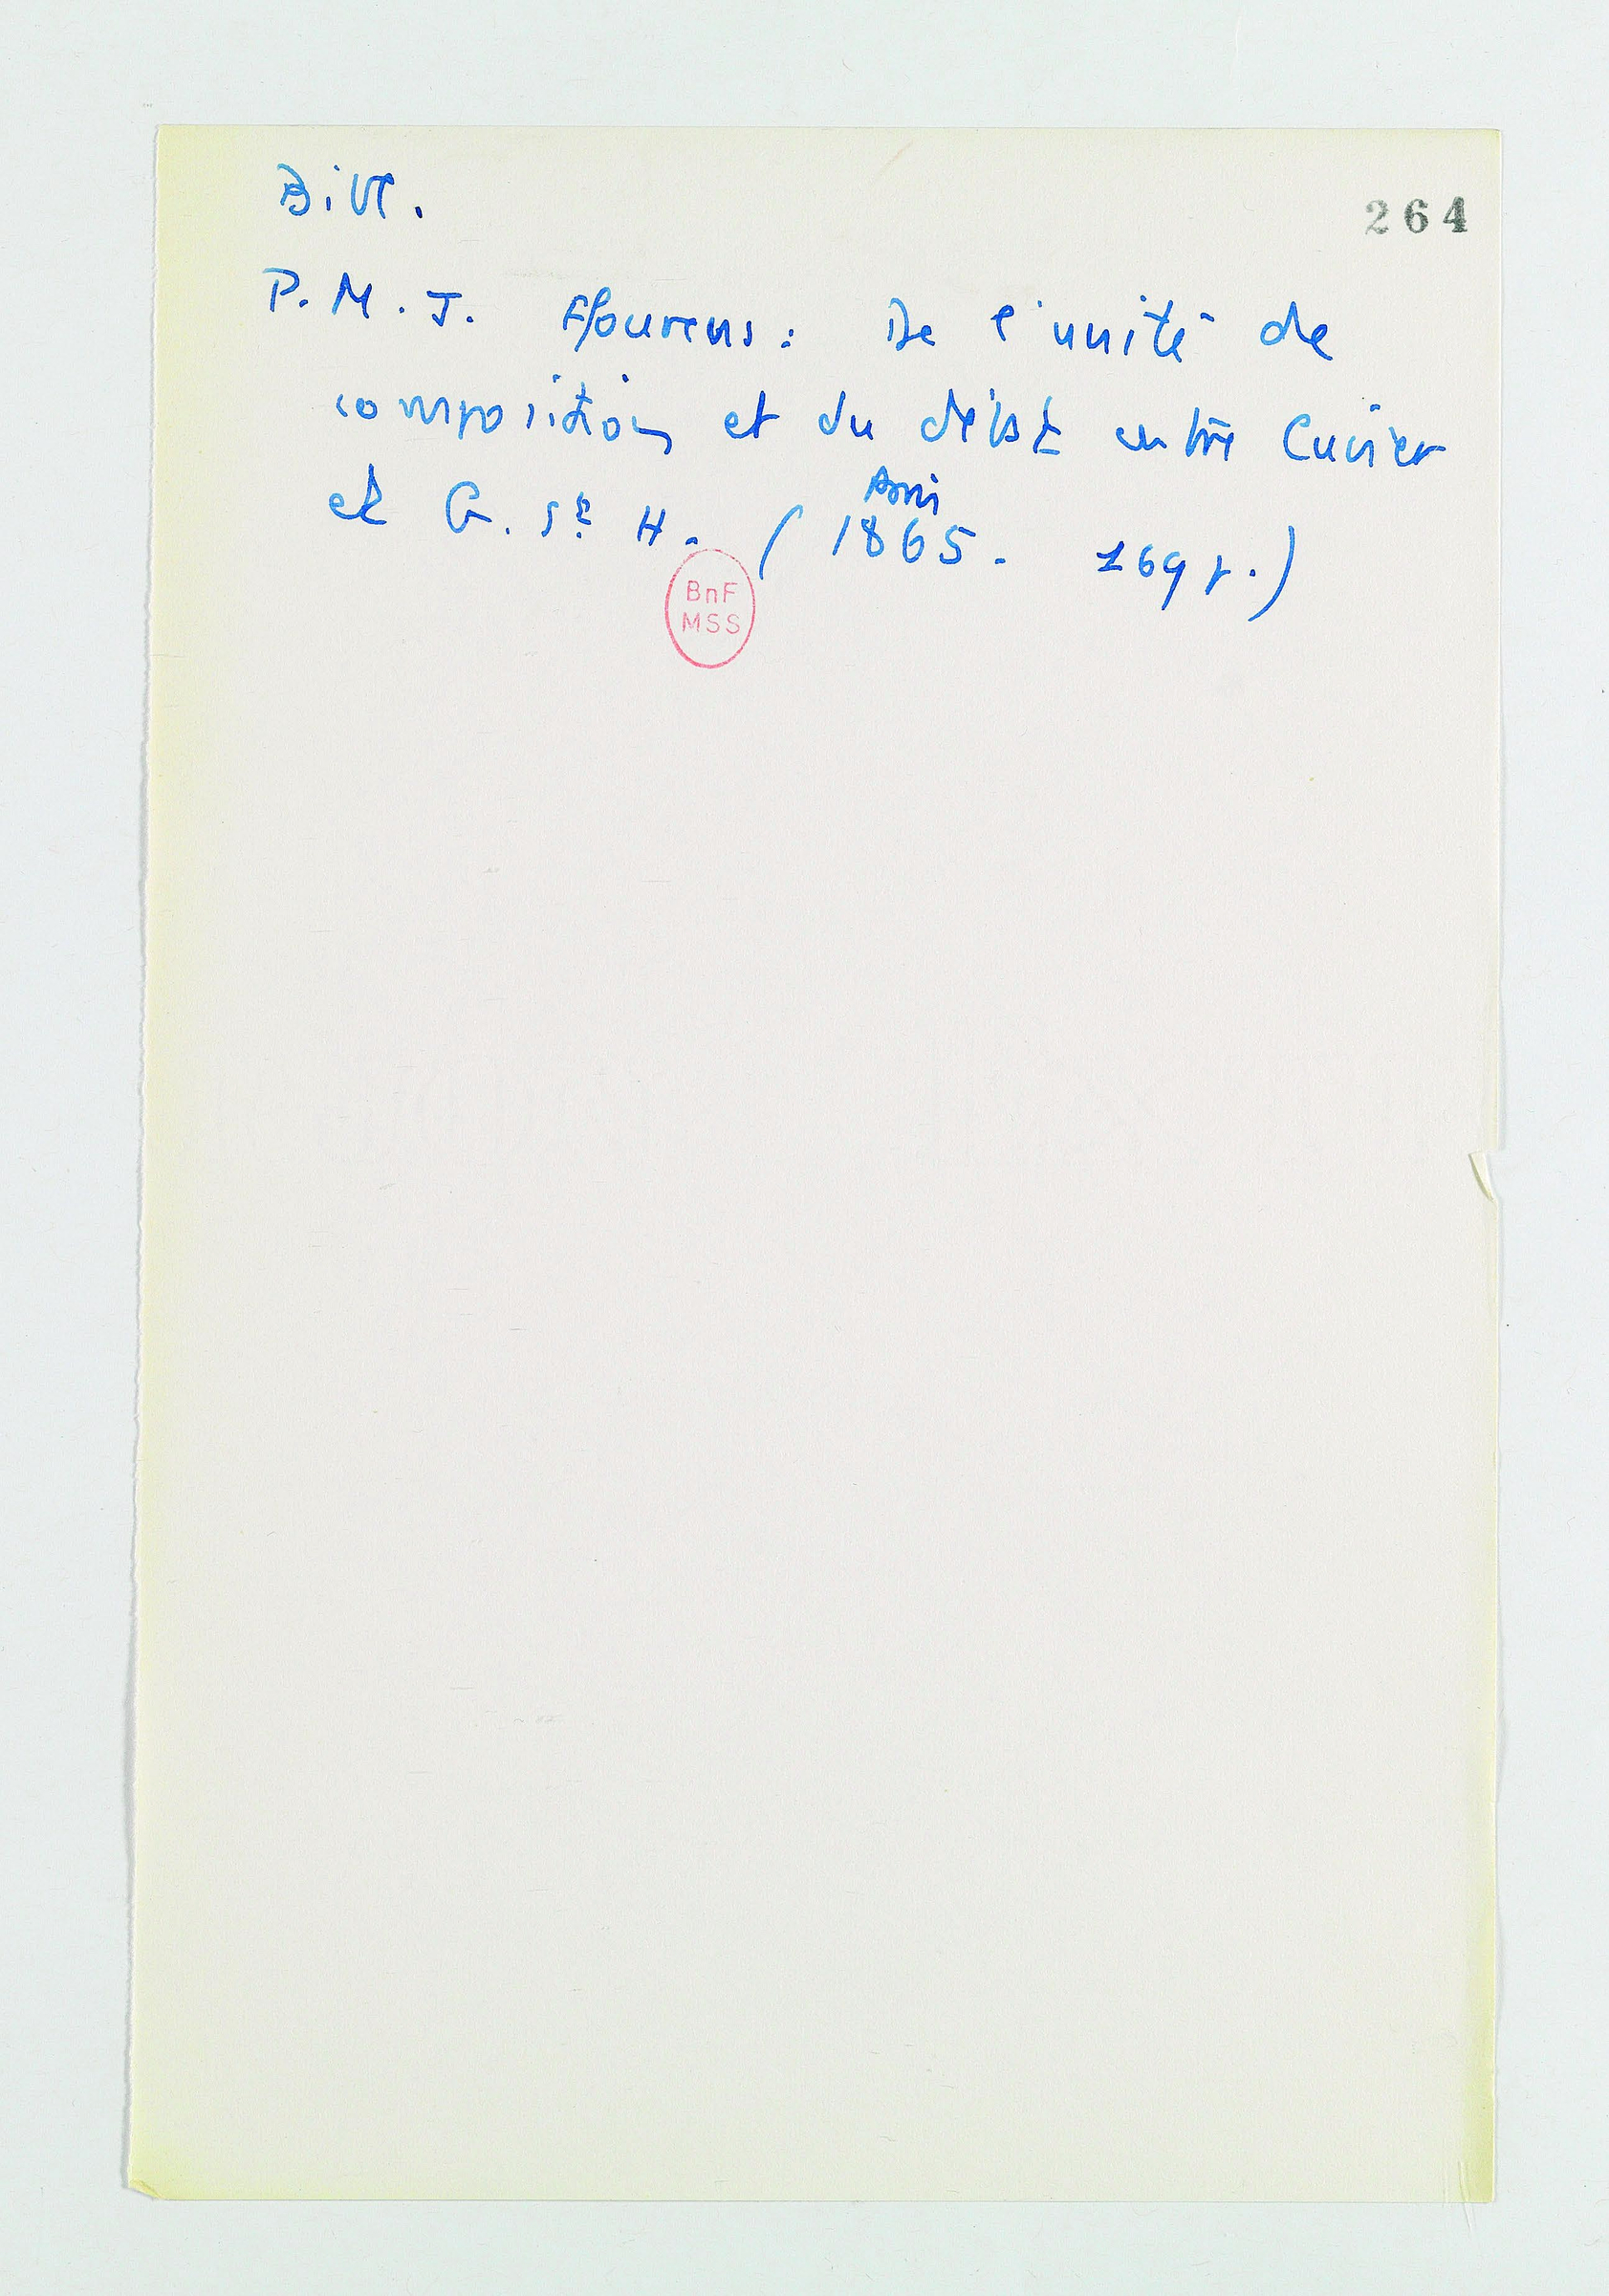 Bibl.
264
P. M. J. Flourens : De l'unité de
composition et du débat entre Cuvier
et G. St H. ( 1865. 169 p.)
Paris
BnF
MSS